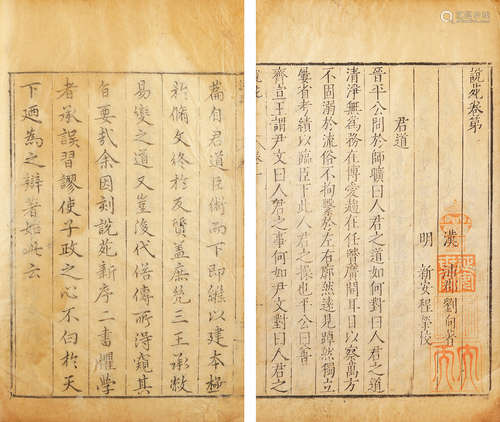 說苑卷第一
漢 沛郡劉向著
明 新安程榮校
君道
晉平公問於師曠曰人君之道如何對曰人君之道
清淨無爲務在博愛趨在任賢廣開耳目以察萬方
不固溺於流俗不拘繫於左右廓然遠見踔然獨立
屢省考績以臨臣下此人君之操也平公曰善
齊宣王謂尹文曰人君之事何如尹文對曰人君之
說苑
篇自君道臣術而下即繼以建本極
於脩文終於反質蓋庶幾三王承敝
易變之道又豈後代俗儒所得窺其
旨要哉余因刻說苑新序二書懼學
者承誤習謬使子政之心不白於天
下廼為之辯著如此云